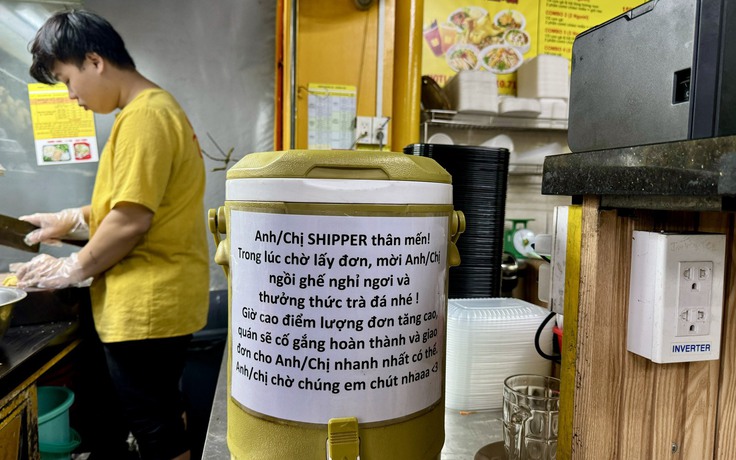 Anh/Chị SHIPPER thân mến!
Trong lúc chờ lấy đơn, mời Anh/Chị
ngồi ghế nghỉ ngơi và
thưởng thức trà đá nhé !
Giờ cao điểm lượng đơn tăng cao,
quán sẽ cố gắng hoàn thành và giao
đơn cho Anh/Chị nhanh nhất có thể.
Anh/chị chờ chúng em chút nhaaa <3
INVERTER